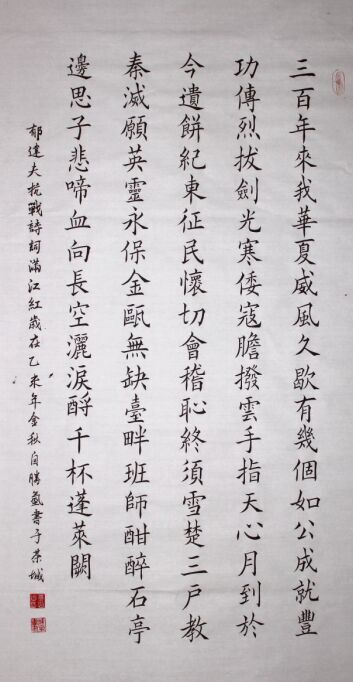 三百年來我華夏威風久歇有幾個如公成就豐
功傳烈拔劍光寒倭寇膽撥雲手指天心月到於
今遺餅紀東征民懷切會稽恥終須雪楚三戶教
秦滅願英靈永保金甌無缺臺畔班師酣醉石亭
邊思子悲啼血向長空灑淚酹千杯蓬萊闕
郁達夫抗戰詩詞滿江紅歲在乙未年金秋自勝氣書于茶城